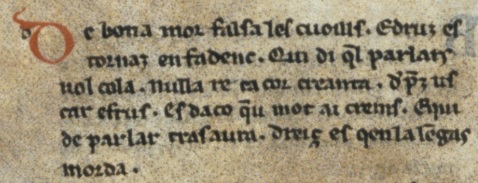 De bona mor fals ales cuoills. Edruz es
tornaz en fadenc. Qui di ql parlars
nol cola. Nulla re ca cor creanta. d'pz us
car es frus. Es daco qu mot ai crems. Qui
de parlar trasaura. dreiz es qen la lengas
morda.